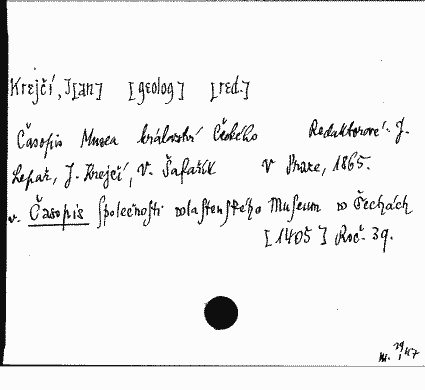 Krejčí, J[an] [geolog] [red.]
Časopis Musea království Českého Redaktorové: J.
Lepař, J. Krejčí, V. Šafařík V Praze, 1865.
v. Časopis společnosti wlastenského Museum w Čechách
[1405] Roč. 39.